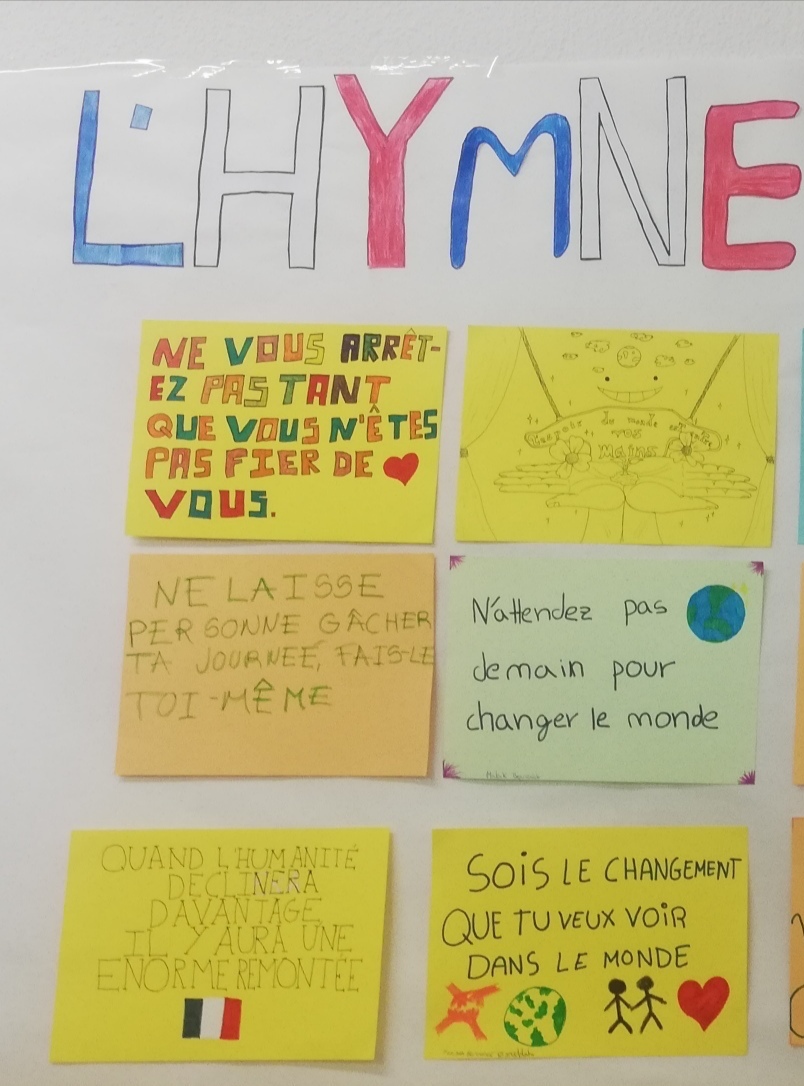 L'HYMNE
NE VOUS ARRÊT-
EZ PAS TANT
QUE VOUS N'ÊTES
PAS FIER DE
VOUS.
L'espoir du monde est entre
vos
Mains
NE LAISSE
PERSONNE GÂCHER
TA JOURNEÉ, FAIS-LE
TOI-MÊME
N'attendez pas
demain pour
changer le monde
QUAND L'HUMANITÉ
DECLINERA
DAVANTAGE
IL Y AURA UNE
ENORME REMONTÉE
SOiS LE CHANGEMENT
QUE TU VEUX VOiR
DANS LE MONDE